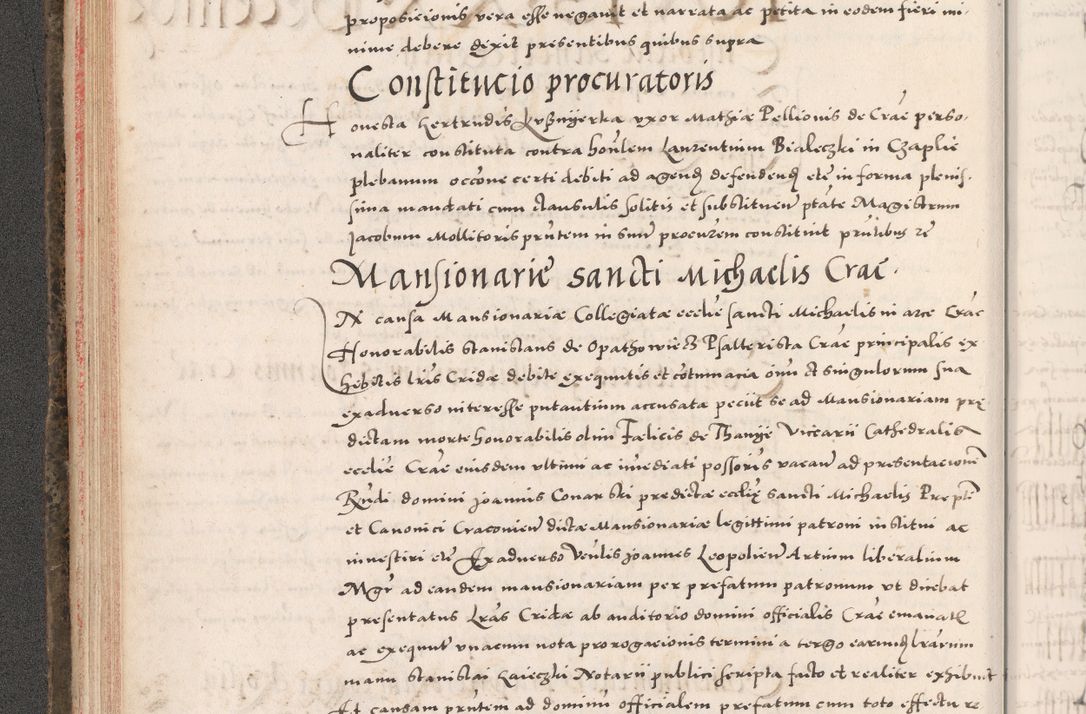 proposicionis vera esse negavit et narrata ac petita in eodem fieri mi-
nime debere dixit presentibus quibus supra
Constitucio procuratoris
Honesta Gertrudis uxor Mathiæ Pellionis de Crac̃ perso-
naliter constituta contra hon̄lem Laurentium Bialeczki in Czaplie
plebanum occõne certi debiti ad agend̨ defendend̨ etc̃ in forma plenis-
sima mandati cum clausulis solitis et substituen̄ ptãte Magistrum
Jacobum Mollitoris pn̄tem in suum procurem constituit pn̄tibus
Mansionariæ sancti Michaelis Crac̃.
In causa Mansionariæ Collegiatæ eccl̄ie sancti Michaelis in arce Crac̃
Honorabilis Stanislaus de Opathowiecz Psalterista Crac̃ principalis ex
hibitis lr̄is Cridæ debite exequutis et cõtumacia om̄iu et singulorum sua
ex adverso interesse putantium accusata peciit se ad Mansionariam præ
dictam morte honorabilis olim Fælicis de Vicarii Cathedralis
ecclie Crac̃ eiusdem ultimi ac im̄ediati poss̄oris vacan̄ ad presentacione
R̄ndi domini Joannis Conarski predictæ eccliæ sancti Michaelis Prepti
et Canonici Cracovien̄ dictæ Mansionariæ legittimi patroni institui ac
investiri etc̃ Ex adverso Ven̄lis Joannes Leopolien̄ Artium liberalium
Mgr̄ ad eandem mansionariam per prefatum patronum ut dicebat
presentatus Lr̄as Cridæ ab auditorio domini officialis Crac̃ emanat
ac exequut̄ una cum nota prorogacionis termini a tergo earund̨ lr̄arum
manu Stanislai Notarii publici scripta facto et realiter exhibuit
Et causam pn̄tem ad dominum officialem prefatum cum toto effectu re